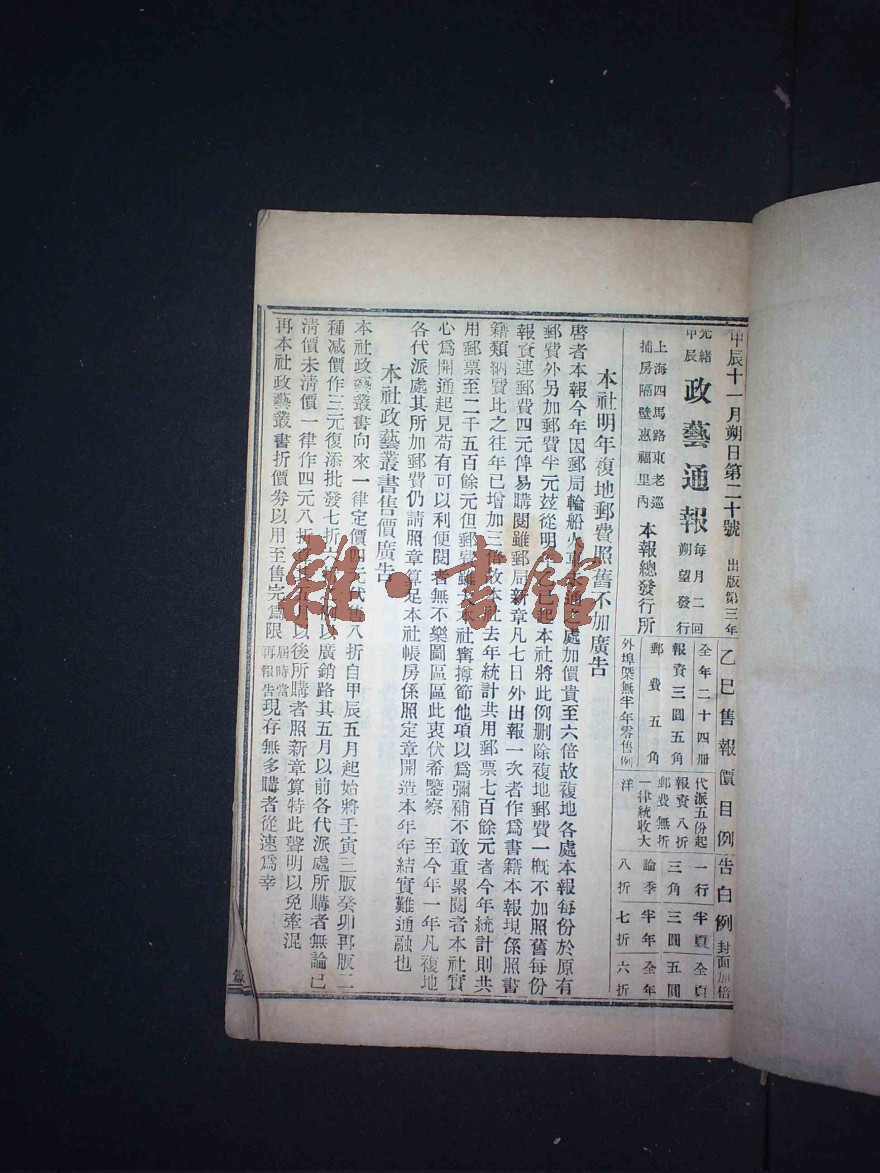 甲辰十一月朔日第二十號 出版第三年
光緒甲辰 政藝通報 每月二回 朔望發行
上海四馬路東老巡
捕房隔壁惠福里內 本報總發行所
乙巳售報價目例
全年二十四冊
報資三圓五角
郵費五角
外埠槩無半年零售例
代派五份起
報資八折
郵費無折
一律統收大
洋
告白例 封面加倍
一行 半頁 全頁
三角 三圓 五圓
論季 半年 全年
八折 七折 六折
本社明年複地郵費照舊不加廣告
啓者本報今年因郵局輪船火車 通之處加價貴至六倍故複地各處本報每份於原有
郵費外另加郵費半元茲從明年 本社將此例删除複地郵費一概不加照舊每份
報資連郵費四元俾易購閱雖郵局新章凡七日外出報一次者作爲書籍本報現係照書
籍類納費比之往年已增加三倍故本社去年統計共用郵票七百餘元者今年統計則共
用郵票至二千五百餘元但郵費雖 本社寗撙節他項以爲彌補不敢重累閱者本社實
心爲開通起見苟有可以利便閱者無不樂圖區區此衷伏希鑒察 至今年一年凡複地
各代派處其所加郵費仍請照章算足本社帳房係照定章開造本年年結實難通融也
本社政藝叢書售價廣告
本社政藝叢書向來一律定價四元伏售八折自甲辰五月起始將壬寅三版癸卯再版二
種減價作三元復添批發七折六 以廣銷路其五月以前各代派處所購者無論已
清價未清價一律作四元八折 五月以後所購者照新章算特此聲明以免牽混
再本社政藝叢書折價劵以用至售完爲限 屆時當再報告 現存無多購者從速爲幸
雜·書館